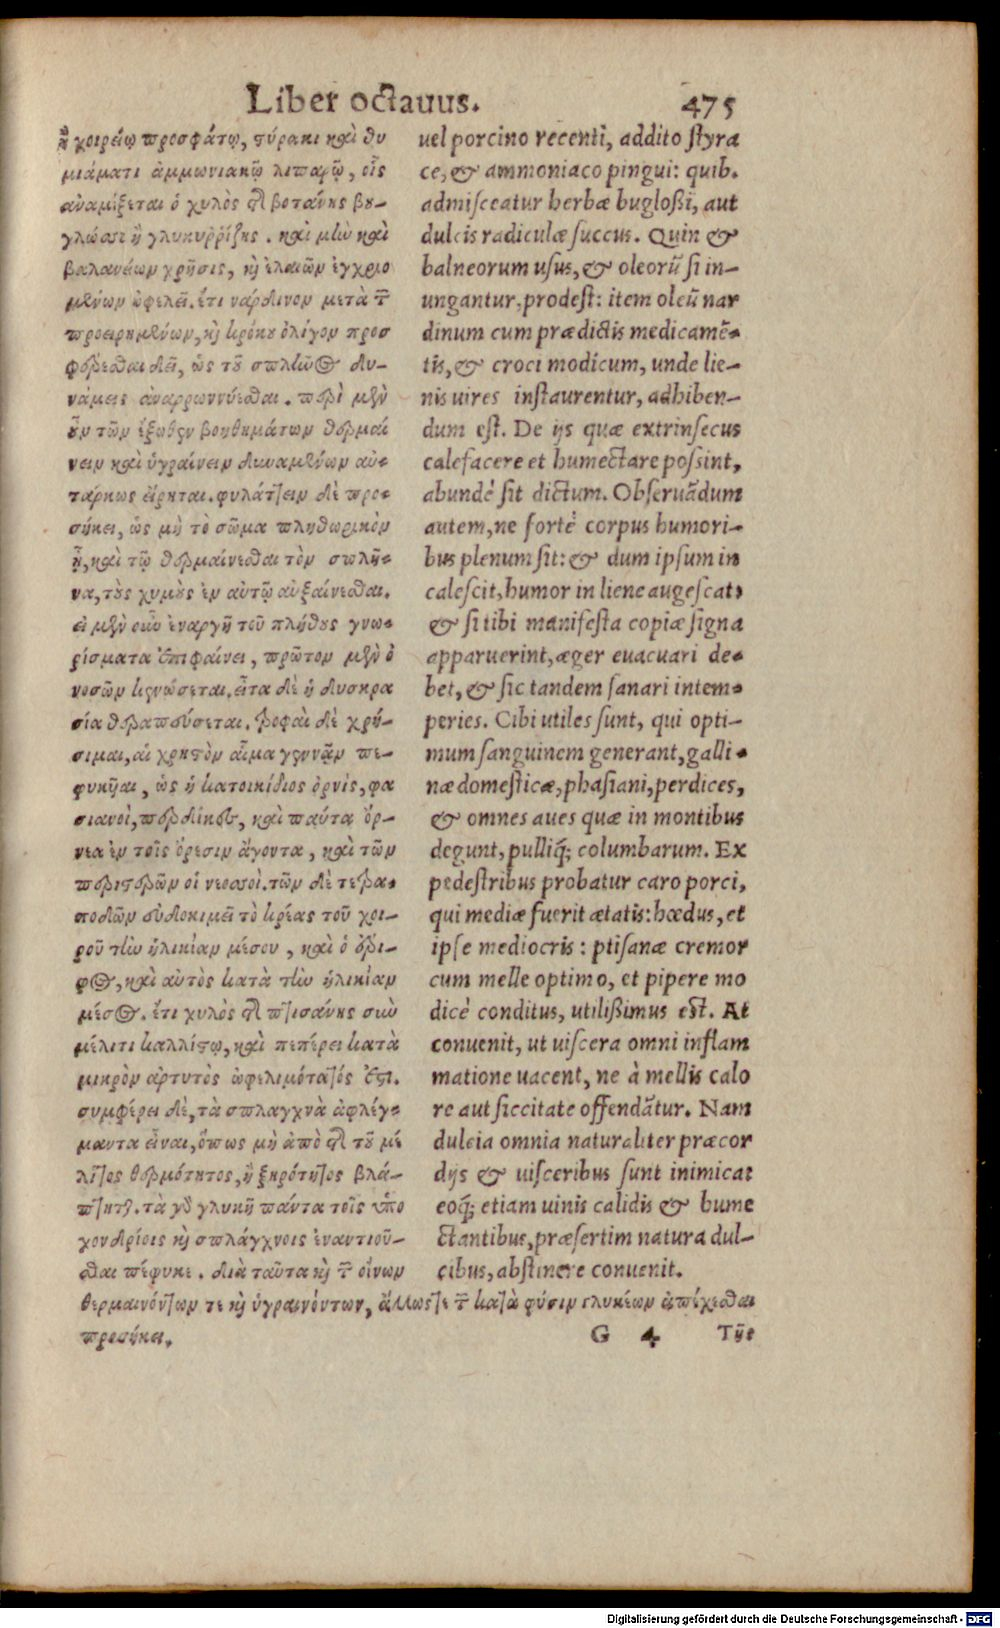 Liber octavus. 475
ἢ χοιρείῳ προσφάτῳ, ϛύρακι καὶ θυ
μιάματι ἀμμωνιακῷ λιπαρῷ, οἷς
ἀναμίξεται ὁ χυλὸς τῆς βοτάνης βου-
γλώσσι ἢ γλυκυῤῥίζης. καὶ μὴν καὶ
βαλανείων χρῆσις, κỳ ἐλαιῶν ἐγχριο
μένων ὠφελεῖ. ἔτι νάρδινον μετὰ τ
προειρημένων, κỳ κρόκου ὀλίγον προσ
φέρεσθαι δεῖ, ὡς τοῦ σπληνὸς δυ-
νάμεις ἀναῤῥωννύεσθαι. περὶ μὲν
οὖν τῶν ἔξωθεν βοηθημάτων θερμαί
νειν καὶ ὑγραίνειν δυναμένων αὐ-
τάρκως εἴρηται. φυλάττειν δὲ προ-
σήκει, ὡς μὴ τὸ σῶμα πληθωρικὸν
ᾖ, καὶ τῷ θερμαίνεσθαι τὸν σπλῆ-
να, τοὺς χυμοὺς ἐν αὐτῷ αὐξαίνεσθαι.
εἰ μὲν οὖν ἐναργῆ τοῦ πλήθους γνω-
ρίσματα ἐπιφαίνει, πρῶτον μὲν ὁ
νοσῶν κενώσεται. εἶτα δὲ ἡ δυσκρα
σία θεραπεύσεται. τροφαὶ δὲ χρή-
σιμαι, αἱ χρηϛὸν αἷμα γεννᾷν πε-
φυκῆαι, ὡς ἡ κατοικίδιος ὀρνὶς, φα
σιανοὶ, πέρδικες, καὶ παύτα ὄρ-
νεα ἐν τοῖς ὄρεσιν ἄγοντα, καὶ τῶν
περιϛερῶν οἱ νεοσσοί. τῶν δὲ τετρα-
ποδῶν εὐδοκιμεῖ τὸ κρέας τοῦ χοι-
ροῦ τὴν ἡλικίαν μέσου, καὶ ὁ ἔρι-
φος, καὶ αὐτὸς κατὰ τὴν ἡλικίαν
μέσος. ἔτι χυλὸς τῆς πτισάνης σὺν
μέλιτι καλλίϛῳ, καὶ πεπέρει κατὰ
μικρὸν ἀρτυτὸς ὠφελιμότατός ἐϛι.
συμφέρει δὲ, τὰ σπλαγχνὰ ἀφλέγ-
μαντα εἶναι, ὅπως μὴ ἀπὸ τῆς τοῦ μέ
λιτος θερμότητος, ἢ ξηρότητος βλά-
πτηται. τὰ γδ γλυκῆ πάντα τοῖς ὑπο
χονδρίοις κỳ σπλάγχνοις ἐναντιοῦ-
σθαι πέφυκε. διὰ ταῦτα κỳ τ οἴνων
θερμαινόντων τε κỳ ὑγραινόντων, ἄλλως τε τ κατὰ φύσιν γλυκέων ἀπέχεσθαι
προσήκει.
uel porcino recenti, addito styra
ce, & ammoniaco pingui: quib.
admisceatur herbæ buglossi, aut
dulcis radiculæ succus. Quin &
balneorum usus, & oleorũ si in-
ungantur, prodest: item oleũ nar
dinum cum prædictis medicamẽ-
tis, & croci modicum, unde lie-
nis uires instaurentur, adhiben-
dum est. De ijs quæ extrinsecus
calefacere et humectare possint,
abundè sit dictum. Obseruãdum
autem, ne fortè corpus humori-
bus plenum sit: & dum ipsum in
calescit, humor in liene augescat:
& si tibi manifesta copiæ signa
apparuerint, æger euacuari de-
bet, & sic tandem sanari intem-
peries. Cibi utiles sunt, qui opti-
mum sanguinem generant, galli-
næ domesticæ, phasiani, perdices,
& omnes aues quæ in montibus
degunt, pulliq́; columbarum. Ex
pedestribus probatur caro porci,
qui mediæ fuerit ætatis: hœdus, et
ipse mediocris: ptisanæ cremor
cum melle optimo, et pipere mo
dicè conditus, utilissimus est. At
conuenit, ut uiscera omni inflam
matione uacent, ne à mellis calo
re aut siccitate offendãtur. Nam
dulcia omnia naturaliter præcor
dijs & uisceribus sunt inimica:
eoq́; etiam uinis calidis & hume
ctantibus, præsertim natura dul-
cibus, abstinere conuenit.
G 4 Τῆς
Digitalisierung gefördert durch die Deutsche Forschungsgemeinschaft - DFG